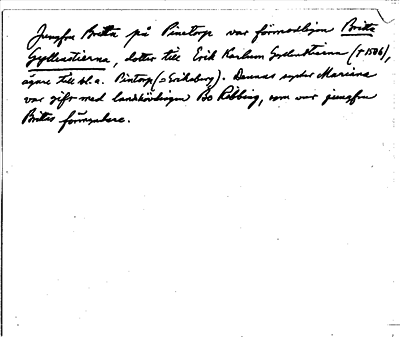 Jungfru Britta på Pintorp var förmodligen Brita
Gyllenstierna, dotter till Erik Karlsson Gyllenstierna (
ägare till bl.a. Pintorp (= Eriksberg). Dennas syster Mariana
var gift med landshövdingen Bo Ribbing, som var jungfru
Britas förmyndare.